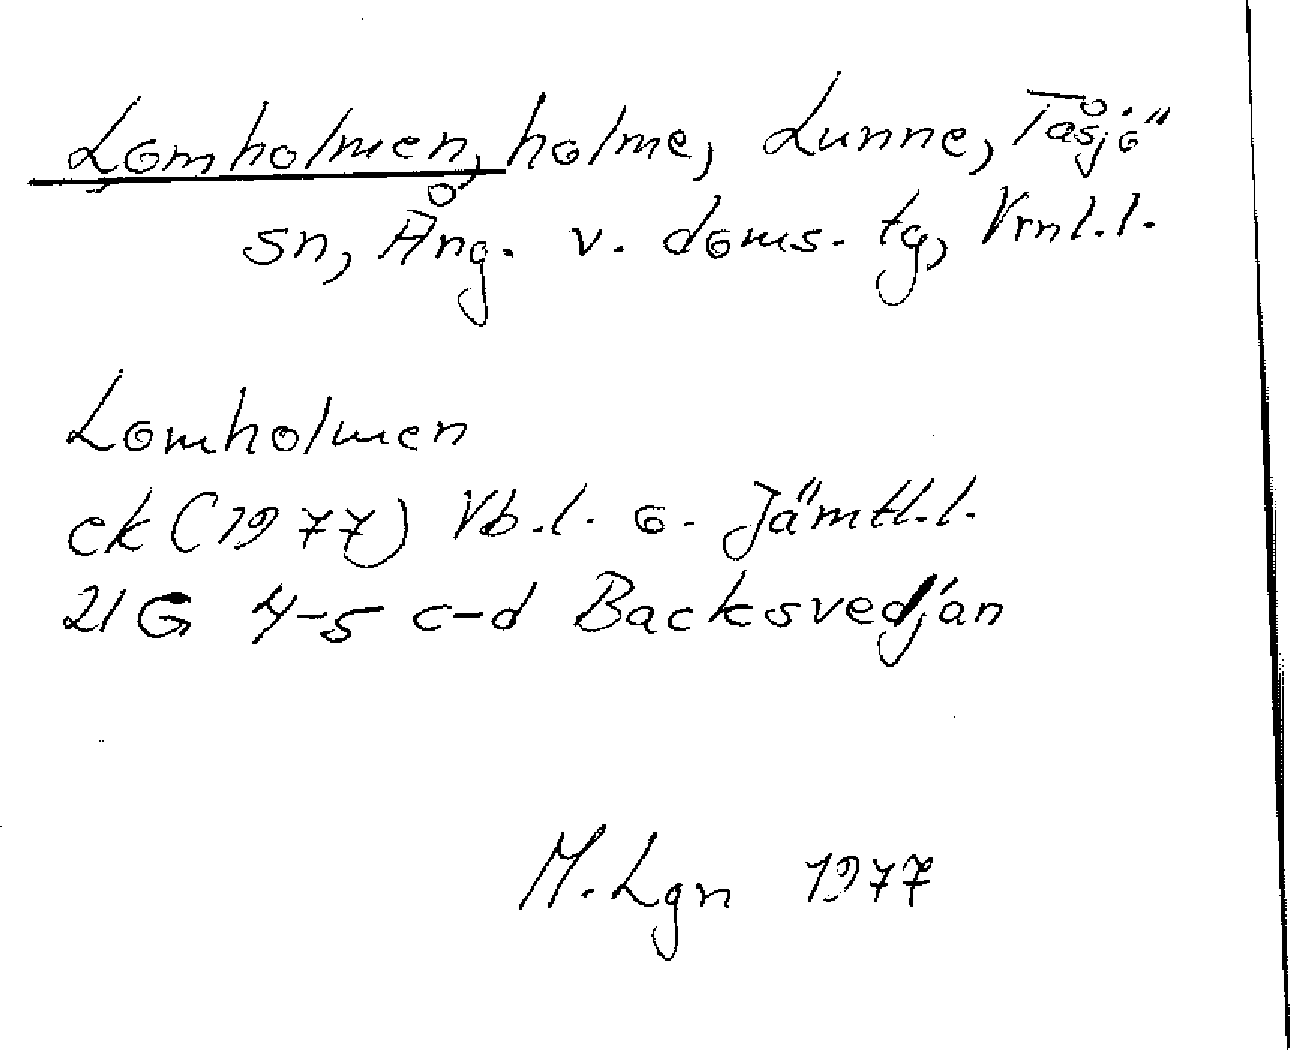 Lomholmen, holme, Lunne, Tåsjö
sn, Ång. v. doms. tg, Vrnl.l.
Lomholmen
ek (1977) Vb.l. o. Jämtl.l.
21 G 4-5 c-d Backsvedjan
M. Lgn 1977